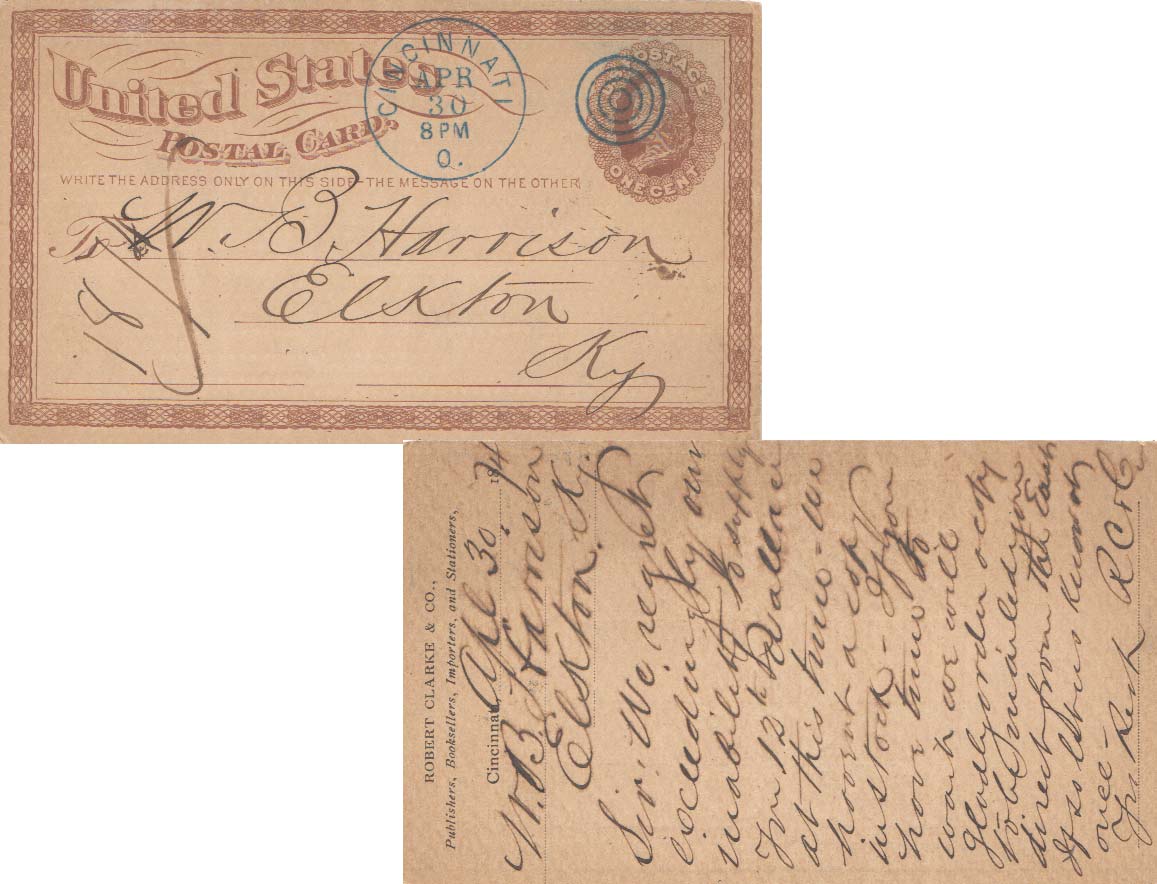 United States
POSTAL CARD.
CINCINNATI
APR
30
8 PM
O.
POSTAGE
ONE CENT
WRITE THE ADDRESS ONLY ON THIS SIDE - THE MESSAGE ON THE OTHER
To W. B. Harrison
Elkton
Ky
ROBERT CLARKE & CO.,
Publishers, Booksellers, Importers, and Stationers,
Cincinnati, Apl 30 1874
W. B. Harrison
Elkton Ky.
Sir: We regret
exceedingly our
inability to supply
you 12th Wallace
at this time - We
havent a copy
in stock - If you
have time to
wait we will
gladly order a copy
to be mailed you
direct from the East
If so let us know at
once -
Yrs Resp R C & Co